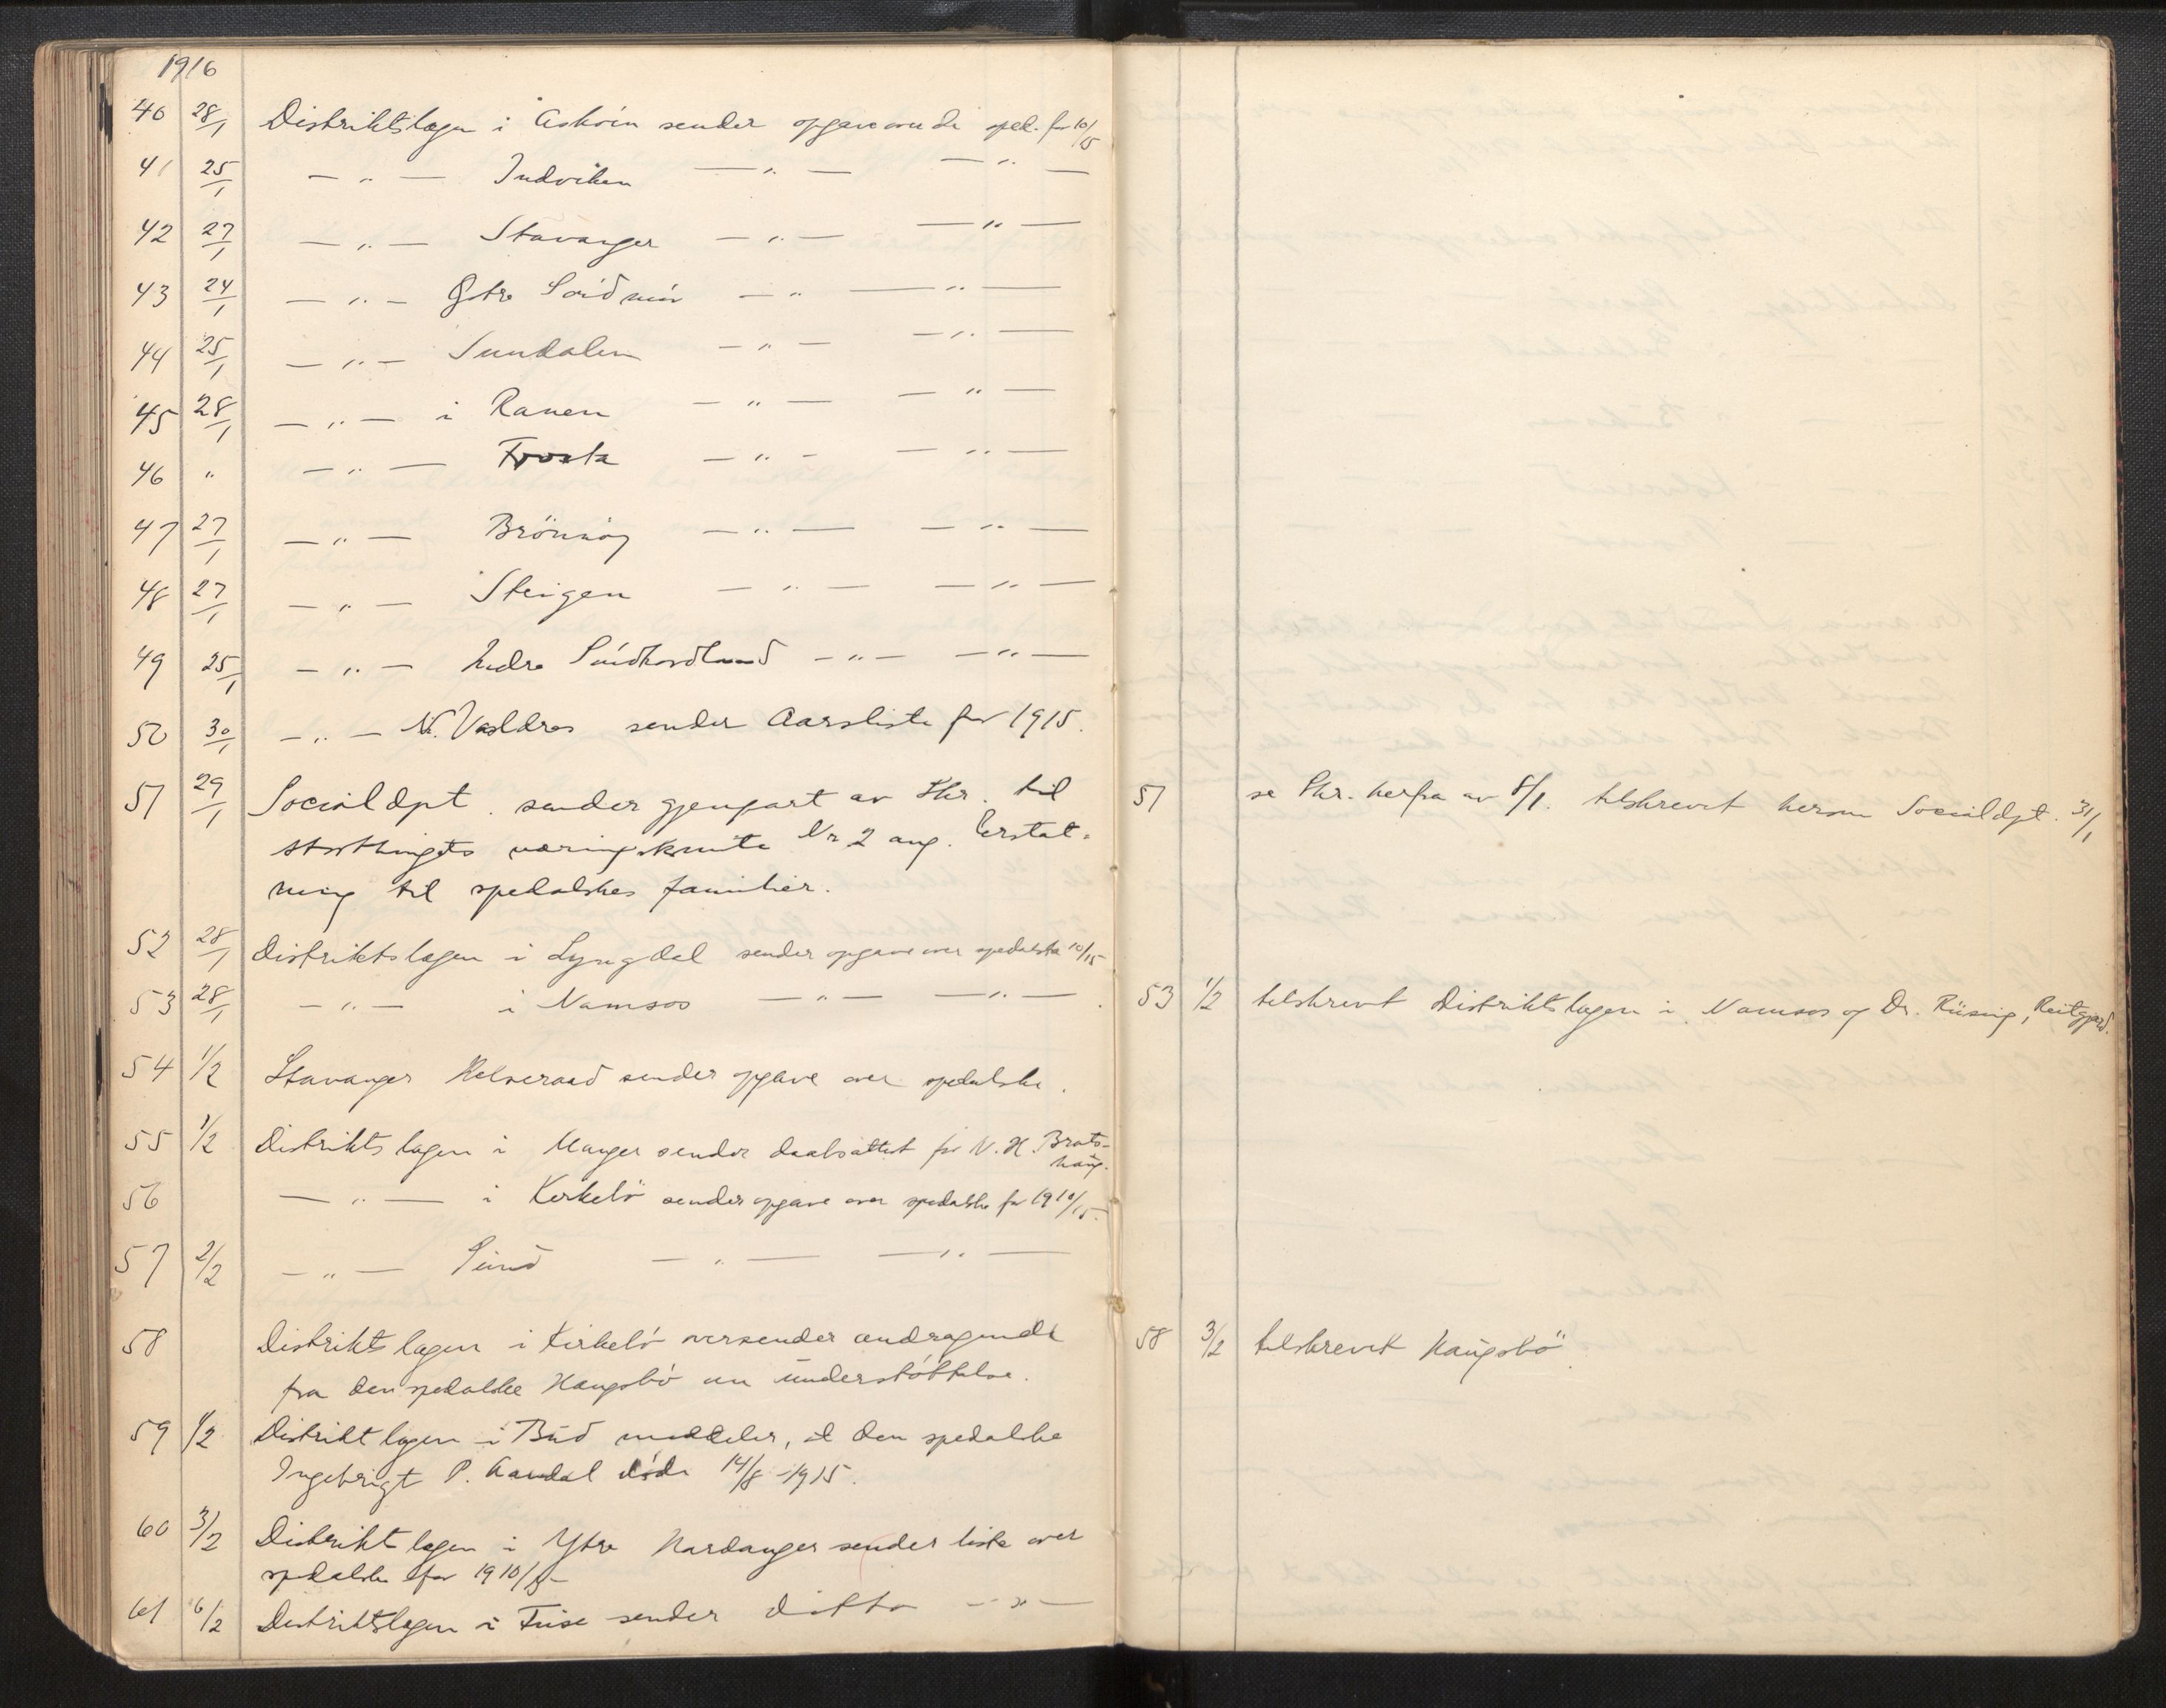 1916
40 28/1 Distriktslægen i Askøen sender opgave over de sped. for 10/15
41 25/1 — " — Indviken — " — — " —
42 27/1 — " — Stavanger — " — — " —
43 24/1 — " — Østre Söndmör — " — " —
44 25/1 — " — Sundalen — " — — " —
45 28/1 — " — i Ranen — " — — " —
46 " — " — Frosta — " — — " —
47 27/1 — " — Brönnöy — " — — " —
48 27/1 — " — Steigen — " — — " —
49 25/1 — " — Indre Söndhordland — " — — " —
50 30/1 — " — N. Valdres sender Aarsliste for 1915.
51 29/1 Socialdpt. sender gjenpart av Skr. til
storthingets næringskomite Nr 2 ang. Erstat-
ning til spedalskes familier.
52 28/1 Distriktslægen i Lyngdal sender opgave over spedalske 10/15
53 28/1 — " — i Namsos — " — — " —
54 1/2 Stavanger Helseraad sender opgave over spedalske.
55 1/2 Distriktslægen i Manger sender daabsattest for N. H. Brats-
haug.
56 — " — i Kirkebö sender opgave over spedalske for 1910/15.
57 2/2 — " — Sund — " — — " —
58 Distriktslægen i Kirkebö oversender andragende
fra den spedalske Haugsbö om understöttelse.
59 1/2 Distriktlægen i Bud meddeler, at den spedalske
Ingebrigt P. Aandal döde 14/8 1915.
60 3/2 Distriktlægen i Ytre Hardanger sender liste over
spedalske for 1910/15
61 6/2 Distriktslægen i Fuse sender ditto — " —
51 se Skr. herfra av 8/1. tilskrevet herom Socialdpt. 31/1
53 1/2 tilskrevet Distriktslægen i Namsos og Dr. Rüsing, Reitgjerd.
58 3/2 tilskrevet Haugsbö